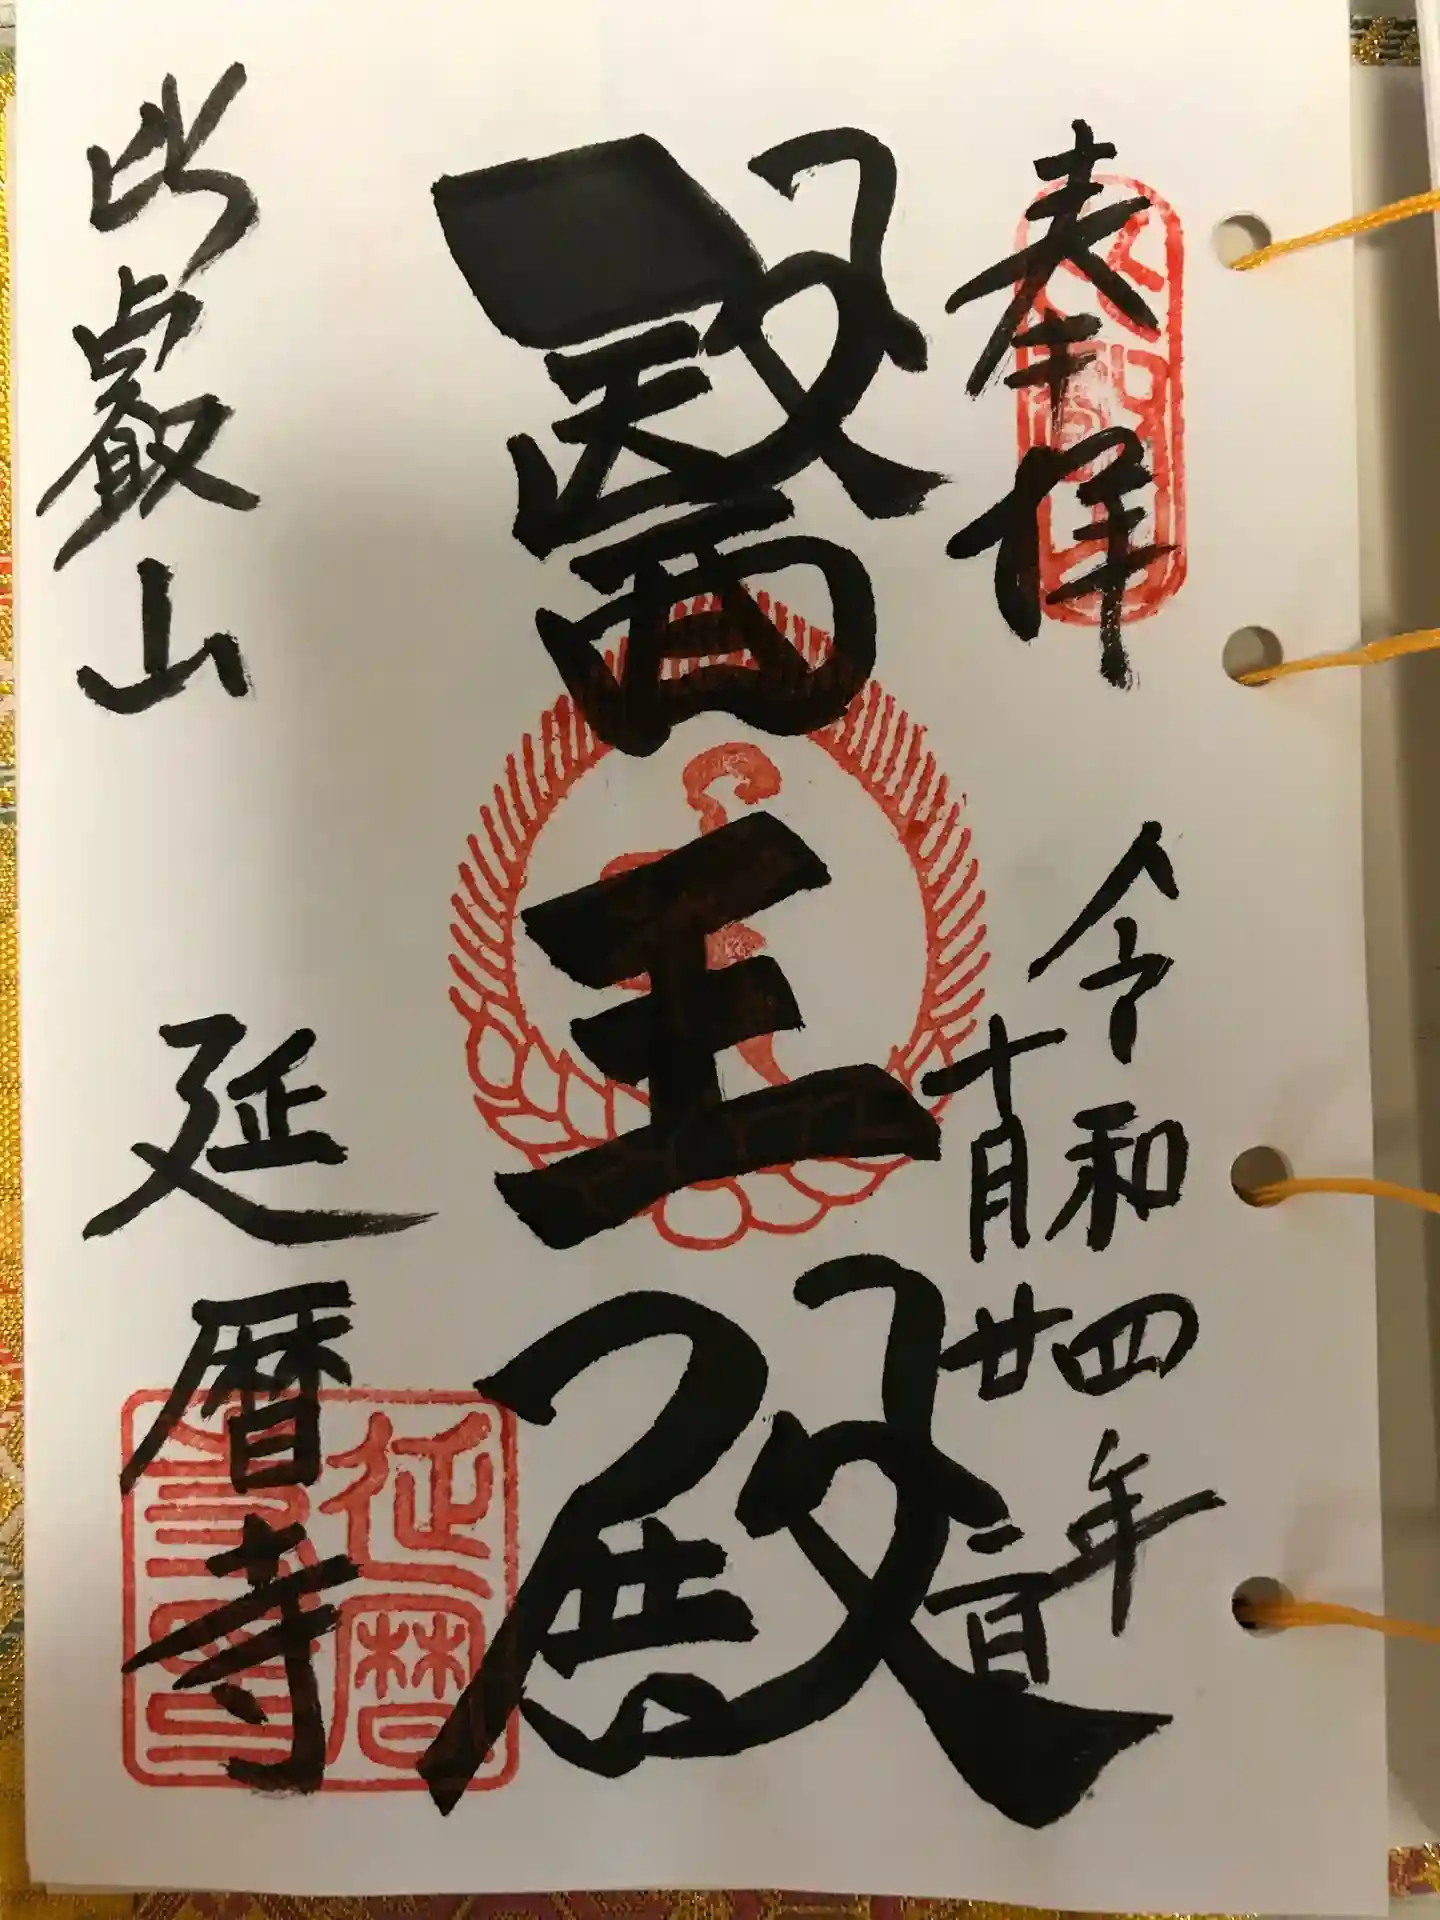 奉拝
令和四年
十月廿二日
醫王殿
比叡山 延暦寺
延暦
寺印